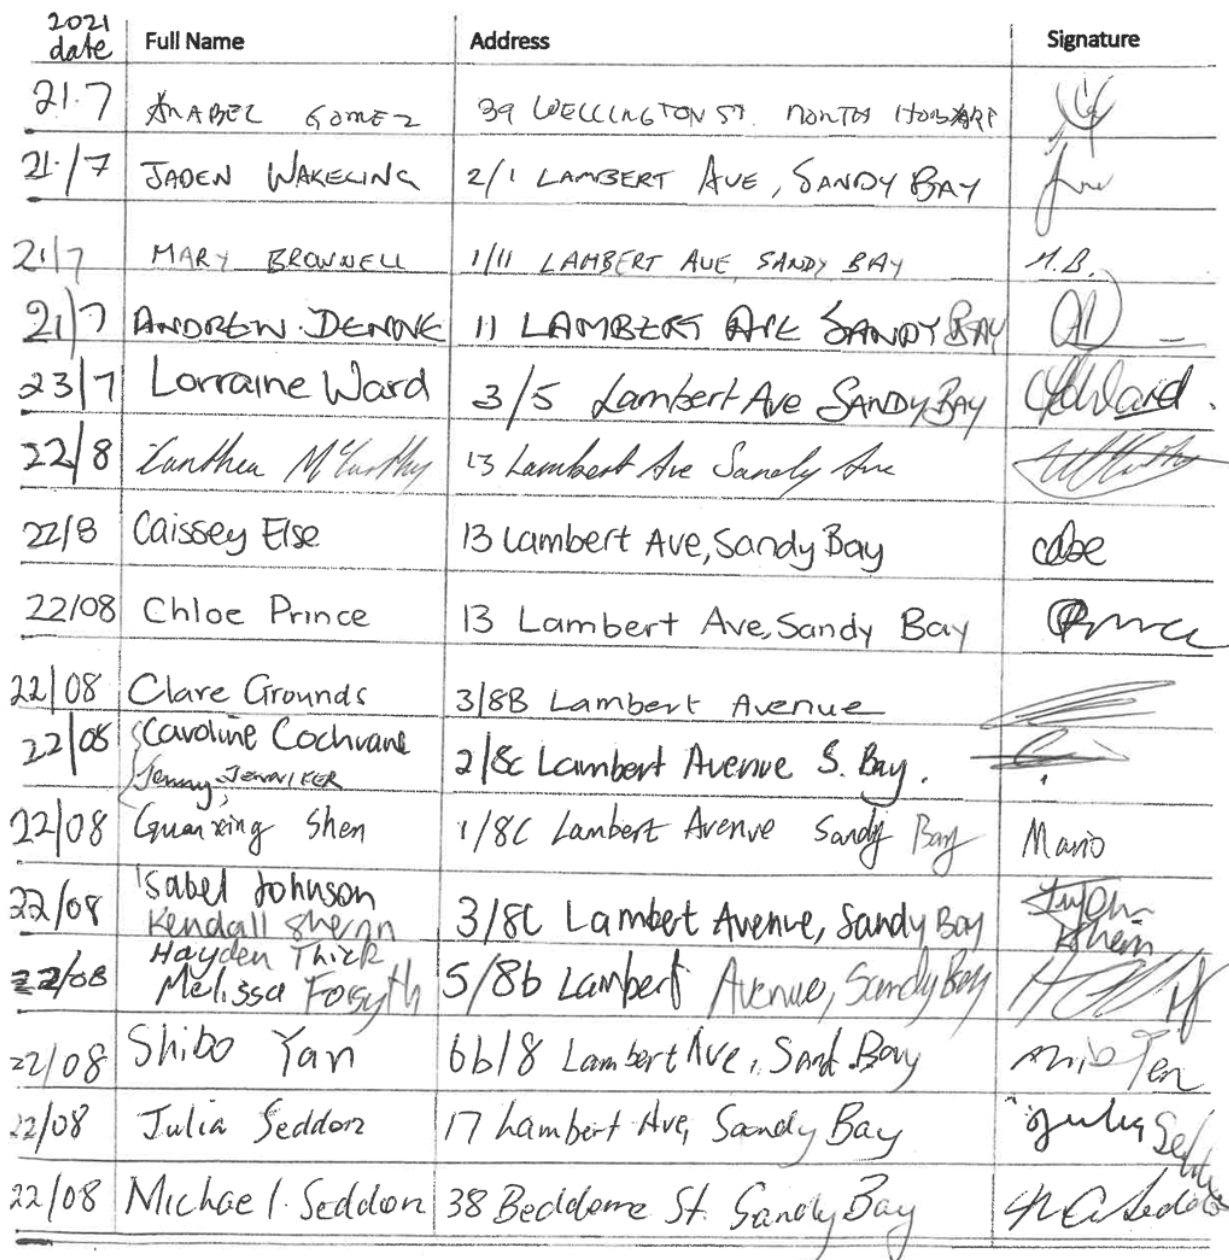 2021
date Full Name Address Signature
21.7 ANABEL GOMEZ 39 WELLINGTON ST. NORTH HOBART
21/7 JADEN WAKELING 2/1 LAMBERT AVE, SANDY BAY
21/7 MARY BROWNELL 1/11 LAMBERT AVE SANDY BAY M.B.
21/7 ANDREW DENNE 11 LAMBERT AVE SANDY BAY
23/7 Lorraine Ward 3/5 Lambert Ave SANDY BAY
22/8 Xanthea McCarthy 13 Lambert Ave Sandy Ave
22/8 Caissey Else 13 Lambert Ave, Sandy Bay
22/08 Chloe Prince 13 Lambert Ave, Sandy Bay Prince
22/08 Clare Grounds 3/8B Lambert Avenue
22/08 Caroline Cochrane 2/8c Lambert Avenue S. Bay.
Jenny
22/08 Guanxing Shen 1/8C Lambert Avenue Sandy Bay Mario
22/08 Isabel Johnson 3/8C Lambert Avenue, Sandy Bay
Kendall
Hayden Thick
22/08 Melissa Forsyth 5/8b Lambert Avenue, Sandy Bay
22/08 Shibo Yan 6b/8 Lambert Ave, Sand. Bay
22/08 Julia Seddon 17 Lambert Ave, Sandy Bay Julia Seddon
22/08 Michael Seddon 38 Beddome St. Sandy Bay